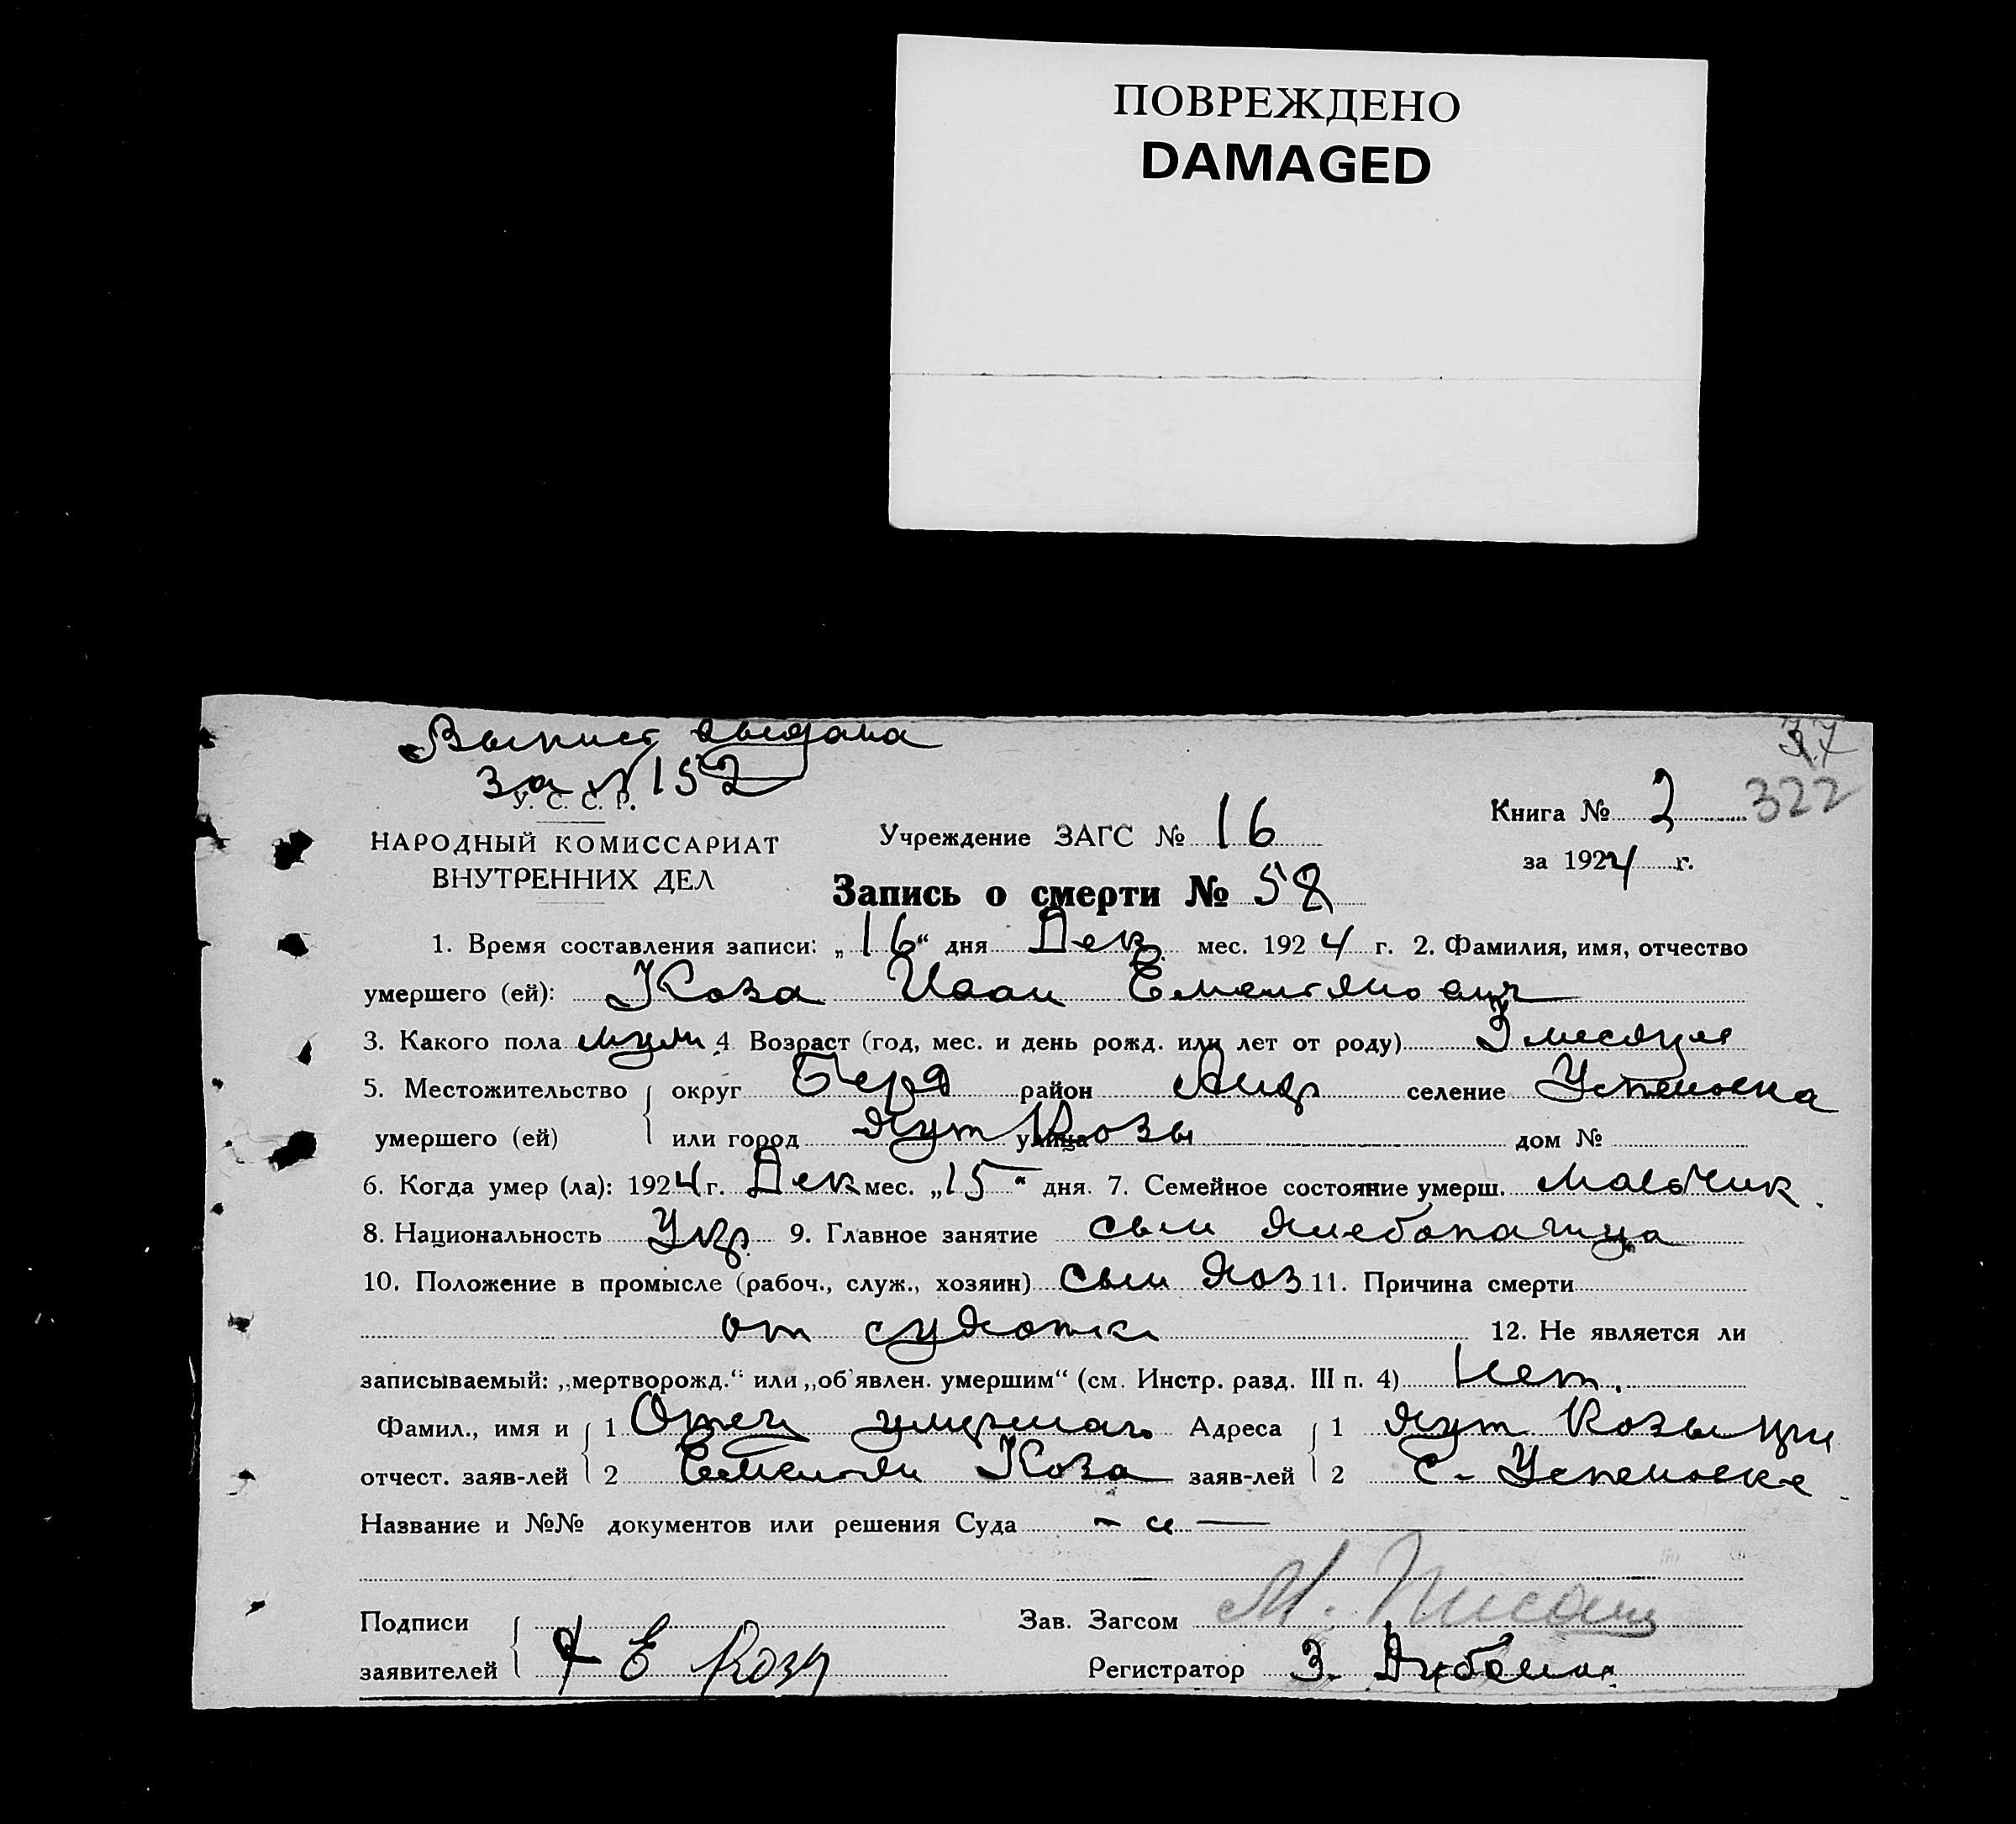 ПОВРЕЖДЕНО
DAMAGED
Выпись выдана
за № 152
37
322
У. С. С. Р.
НАРОДНЫЙ КОМИССАРИАТ
ВНУТРЕННИХ ДЕЛ
Учреждение ЗАГС № 16
Книга № 2
за 1924 г.
Запись о смерти № 58
1. Время составления записи: „16“ дня Дек. мес. 1924 г. 2. Фамилия, имя, отчество
умершего (ей): Коза Иван Емельянович
3. Какого пола муж. 4 Возраст (год, мес. и день рожд. или лет от роду) 3 месяця
5. Местожительство округ Берд район Андр селение Успеновка
умершего (ей) или город хут Козы улица дом №
6. Когда умер (ла): 1924 г. Дек мес. „15“ дня. 7. Семейное состояние умерш. мальчик.
8. Национальность Укр. 9. Главное занятие сын хлебопашца
10. Положение в промысле (рабоч., служ., хозяин) сын хоз 11. Причина смерти
от сухотки 12. Не является ли
записываемый: „мертворожд.“ или „об'явлен. умершим“ (см. Инстр. разд. III п. 4) Нет.
Фамил., имя и 1 Отец умершаго Адреса 1 хут Козы при
отчест. заяв-лей 2 Емельян Коза заяв-лей 2 с. Успеновке
Название и №№ документов или решения Суда - и —
Подписи Зав. Загсом
заявителей Е Коза Регистратор З.